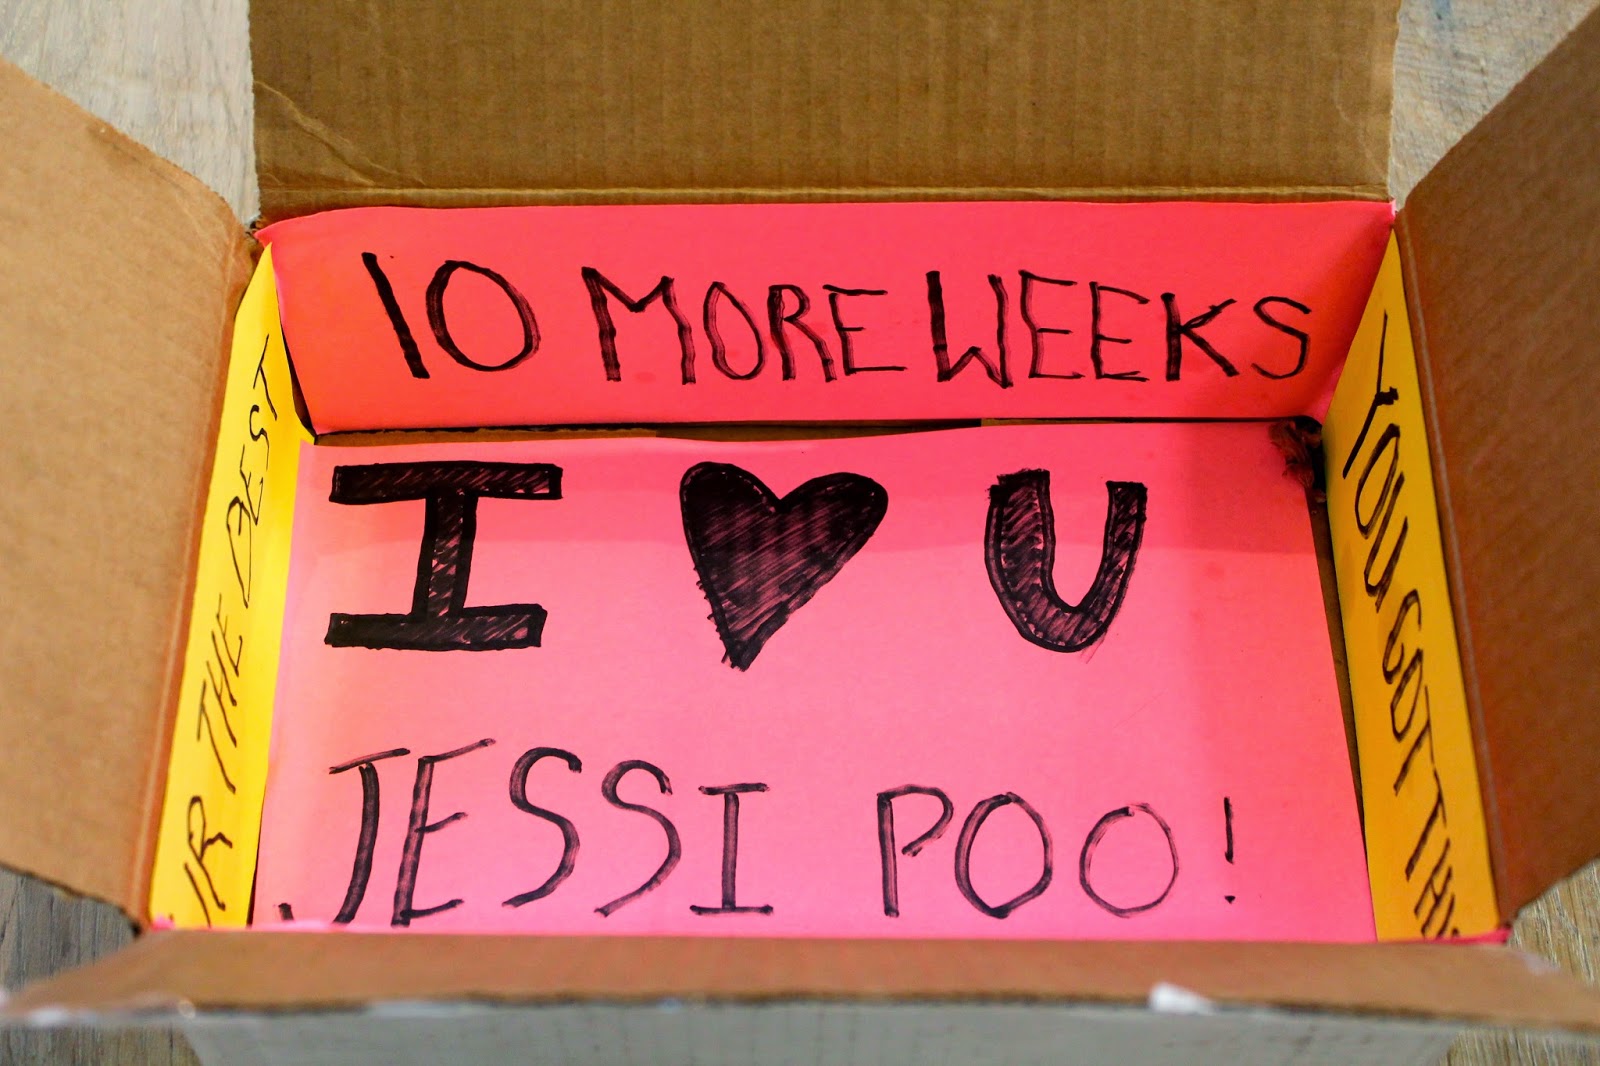 10 MORE WEEKS
I ♥ U
JESSI POO!
UR THE BEST
YOU GOT THIS